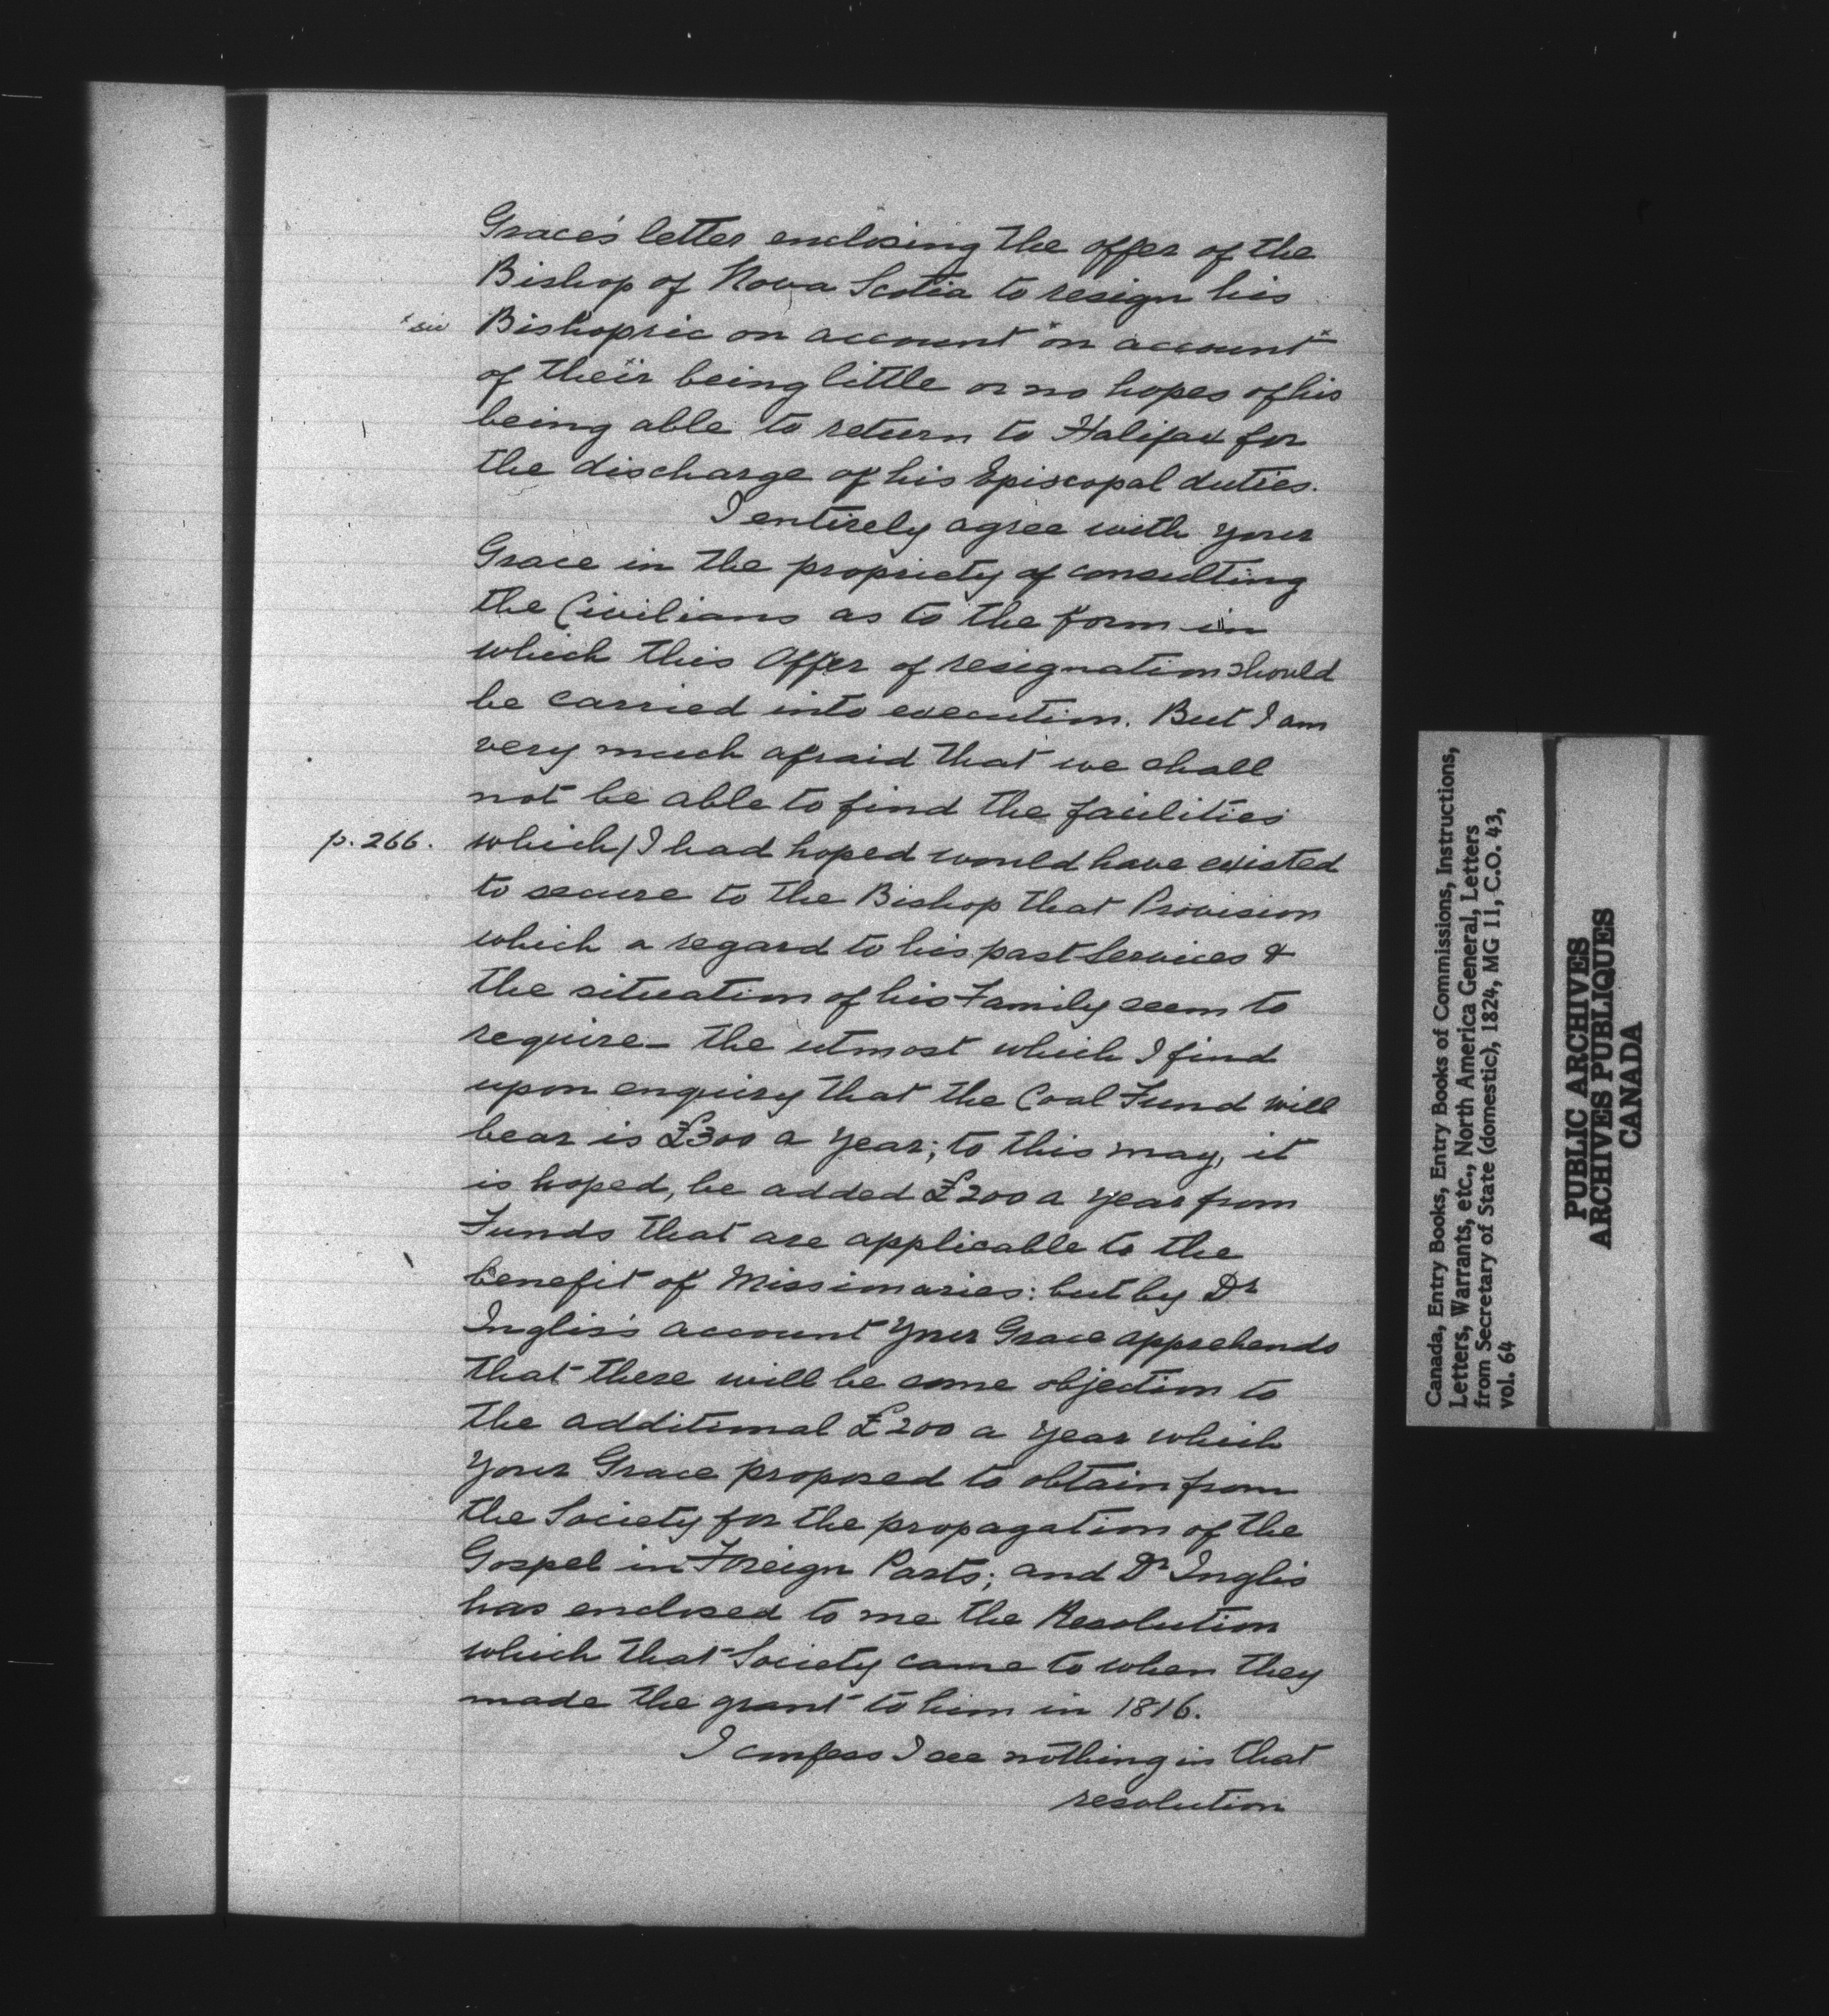 Grace's letter enclosing the offer of the
Bishop of Nova Scotia to resign his
x sic Bishopric on account x on account x
of their being little or no hopes of his
being able to return to Halifax for
the discharge of his Episcopal duties.
I entirely agree with your
Grace in the propriety of consulting
the Civilians as to the form in
which this Offer of resignation should
be carried into execution. But I am
very much afraid that we shall
not be able to find the facilities
p. 266. which / I had hoped would have existed
to secure to the Bishop that Provision
which a regard to his past Services &
the situation of his Family seem to
require – the utmost which I find
upon enquiry that the Coal Fund will
bear is £300 a year; to this may, it
is hoped, be added £200 a year from
Funds that are applicable to the
benefit of Missionaries: but by Dr
Inglis's account Your Grace apprehends
that there will be some objection to
the additional £200 a year which
Your Grace proposed to obtain from
the Society for the propagation of the
Gospel in Foreign Parts; and Dr Inglis
has enclosed to me the Resolution
which that Society came to when they
made the grant to him in 1816.
I confess I see nothing in that
resolution
Canada, Entry Books, Entry Books of Commissions, Instructions,
Letters, Warrants, etc., North America General, Letters
from Secretary of State (domestic), 1824, MG 11, C.O. 43,
vol. 64
PUBLIC ARCHIVES
ARCHIVES PUBLIQUES
CANADA